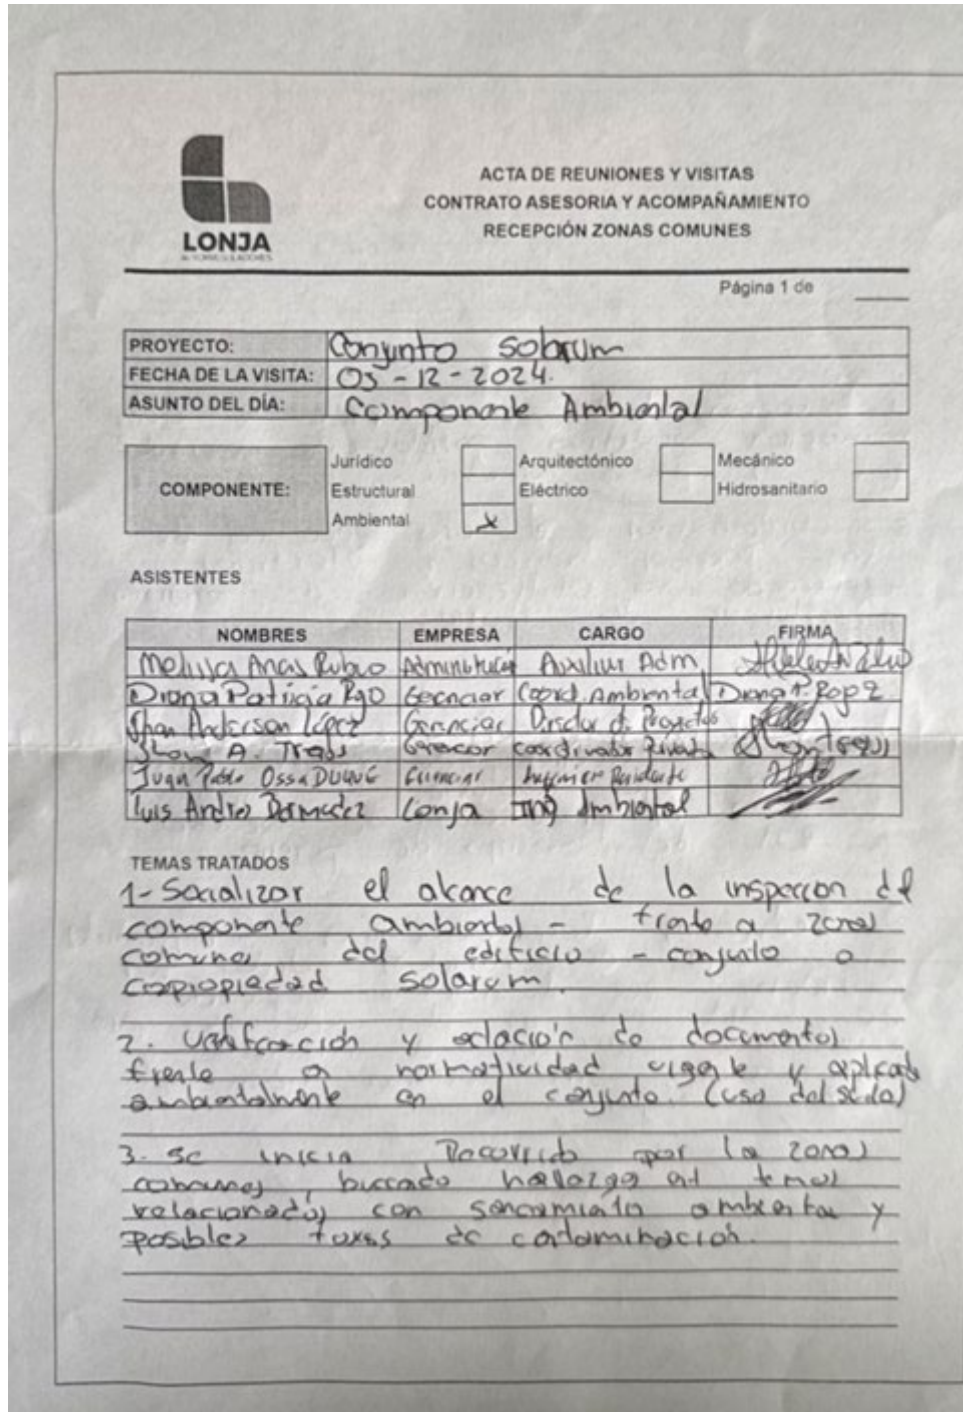 ACTA DE REUNIONES Y VISITAS
CONTRATO ASESORIA Y ACOMPAÑAMIENTO
RECEPCIÓN ZONAS COMUNES
LONJA
Página 1 de
PROYECTO: Conjunto Solarum
FECHA DE LA VISITA: 05-12-2024.
ASUNTO DEL DÍA: Componente Ambiental
COMPONENTE:
Jurídico Arquitectónico Mecánico
Estructural Eléctrico Hidrosanitario
Ambiental x
ASISTENTES
NOMBRES EMPRESA CARGO FIRMA
Melissa Arias Rubio Administración Auxiliar Adm
Diana Patricia Gerenciar Coord. Ambiental Diana P.
Jhan Anderson López Gerenciar Director de Proyectos
A. Gerenciar coordinador
Juan Pablo Ossa DUQUE Gerenciar Ingeniero Residente
Luis Andres Bermudez Lonja Ing Ambiental
TEMAS TRATADOS
1- Socializar el alcance de la inspeccion del
componente ambiental - frente a zonas
comunes del edificio - conjunto o
copropiedad solarum.
2. y de documentos
frente a normatividad vigente y aplicada
ambientalmente en el conjunto. (uso del suelo)
3. Se inicia Recorrido por la zonas
comunes, buscado hallazgo en temas
relacionados con saneamiento ambiental y
posibles de contaminación.